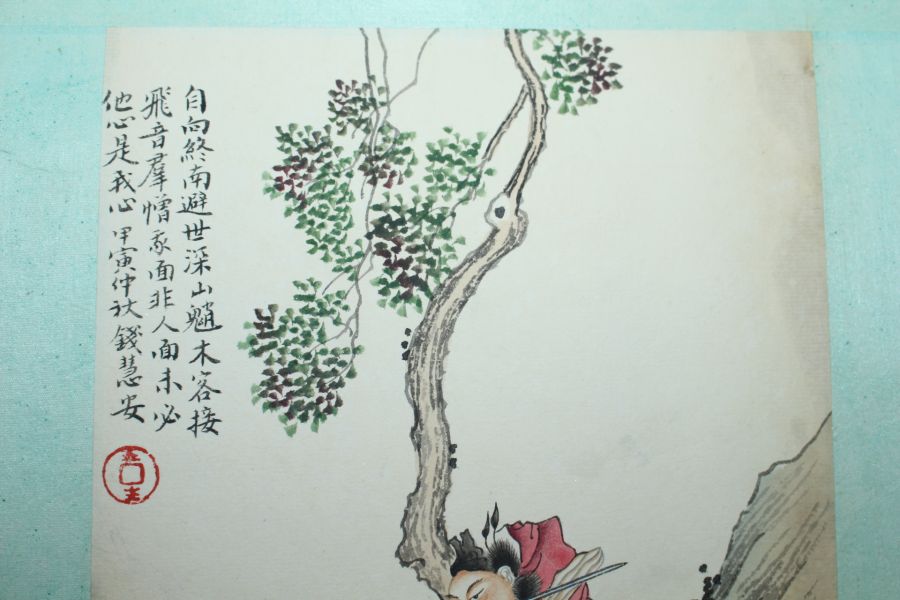 自向終南避世深山魈木客接
飛音群憎我面非人面未必
他心是我心 甲寅仲秋 錢慧安